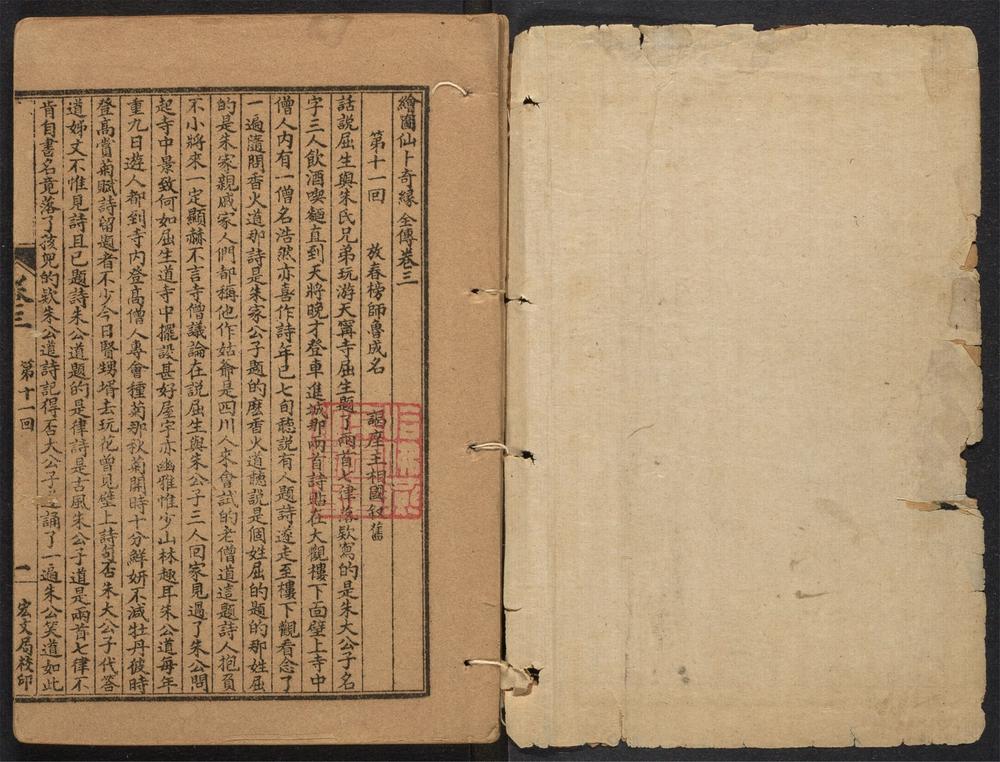 繪圖仙卜奇緣全傳卷三
第十一回　放春榜師魯成名　謁座主相國叙舊
話說屈生與朱氏兄弟玩游天寗寺屈生題了兩首七律落欵寫的是朱大公子名
字三人飲酒喫麵直到天將晚才登車進城那兩首詩貼在大觀樓下面壁上寺中
僧人內有一僧名浩然亦喜作詩年已七旬聽說有人題詩遂走至樓下觀看念了
一遍隨問香火道那詩是朱家公子題的麽香火道聽說是個姓屈的題的那姓屈
的是朱家親戚家人們都稱他作姑爺是四川人來會試的老僧道這題詩人抱負
不小將來一定顯赫不言寺僧議論在說屈生與朱公子三人回家見過了朱公問
起寺中景致何如屈生道寺中擺設甚好屋宇亦幽雅惟少山林趣耳朱公道每年
重九日遊人都到寺內登高僧人專會種菊那秋菊開時十分鮮妍不減牡丹彼時
登高賞菊賦詩留題者不少今日賢甥壻去玩花曾見壁上詩句否朱大公子代答
道姊丈不惟見詩且已題詩朱公道題的是律詩是古風朱公子道是兩首七律不
肯自書名竟落了孩兒的欵朱公道詩記得否大公子誦了一遍朱公笑道如此
卷三　第十一回　一　宏文局校印